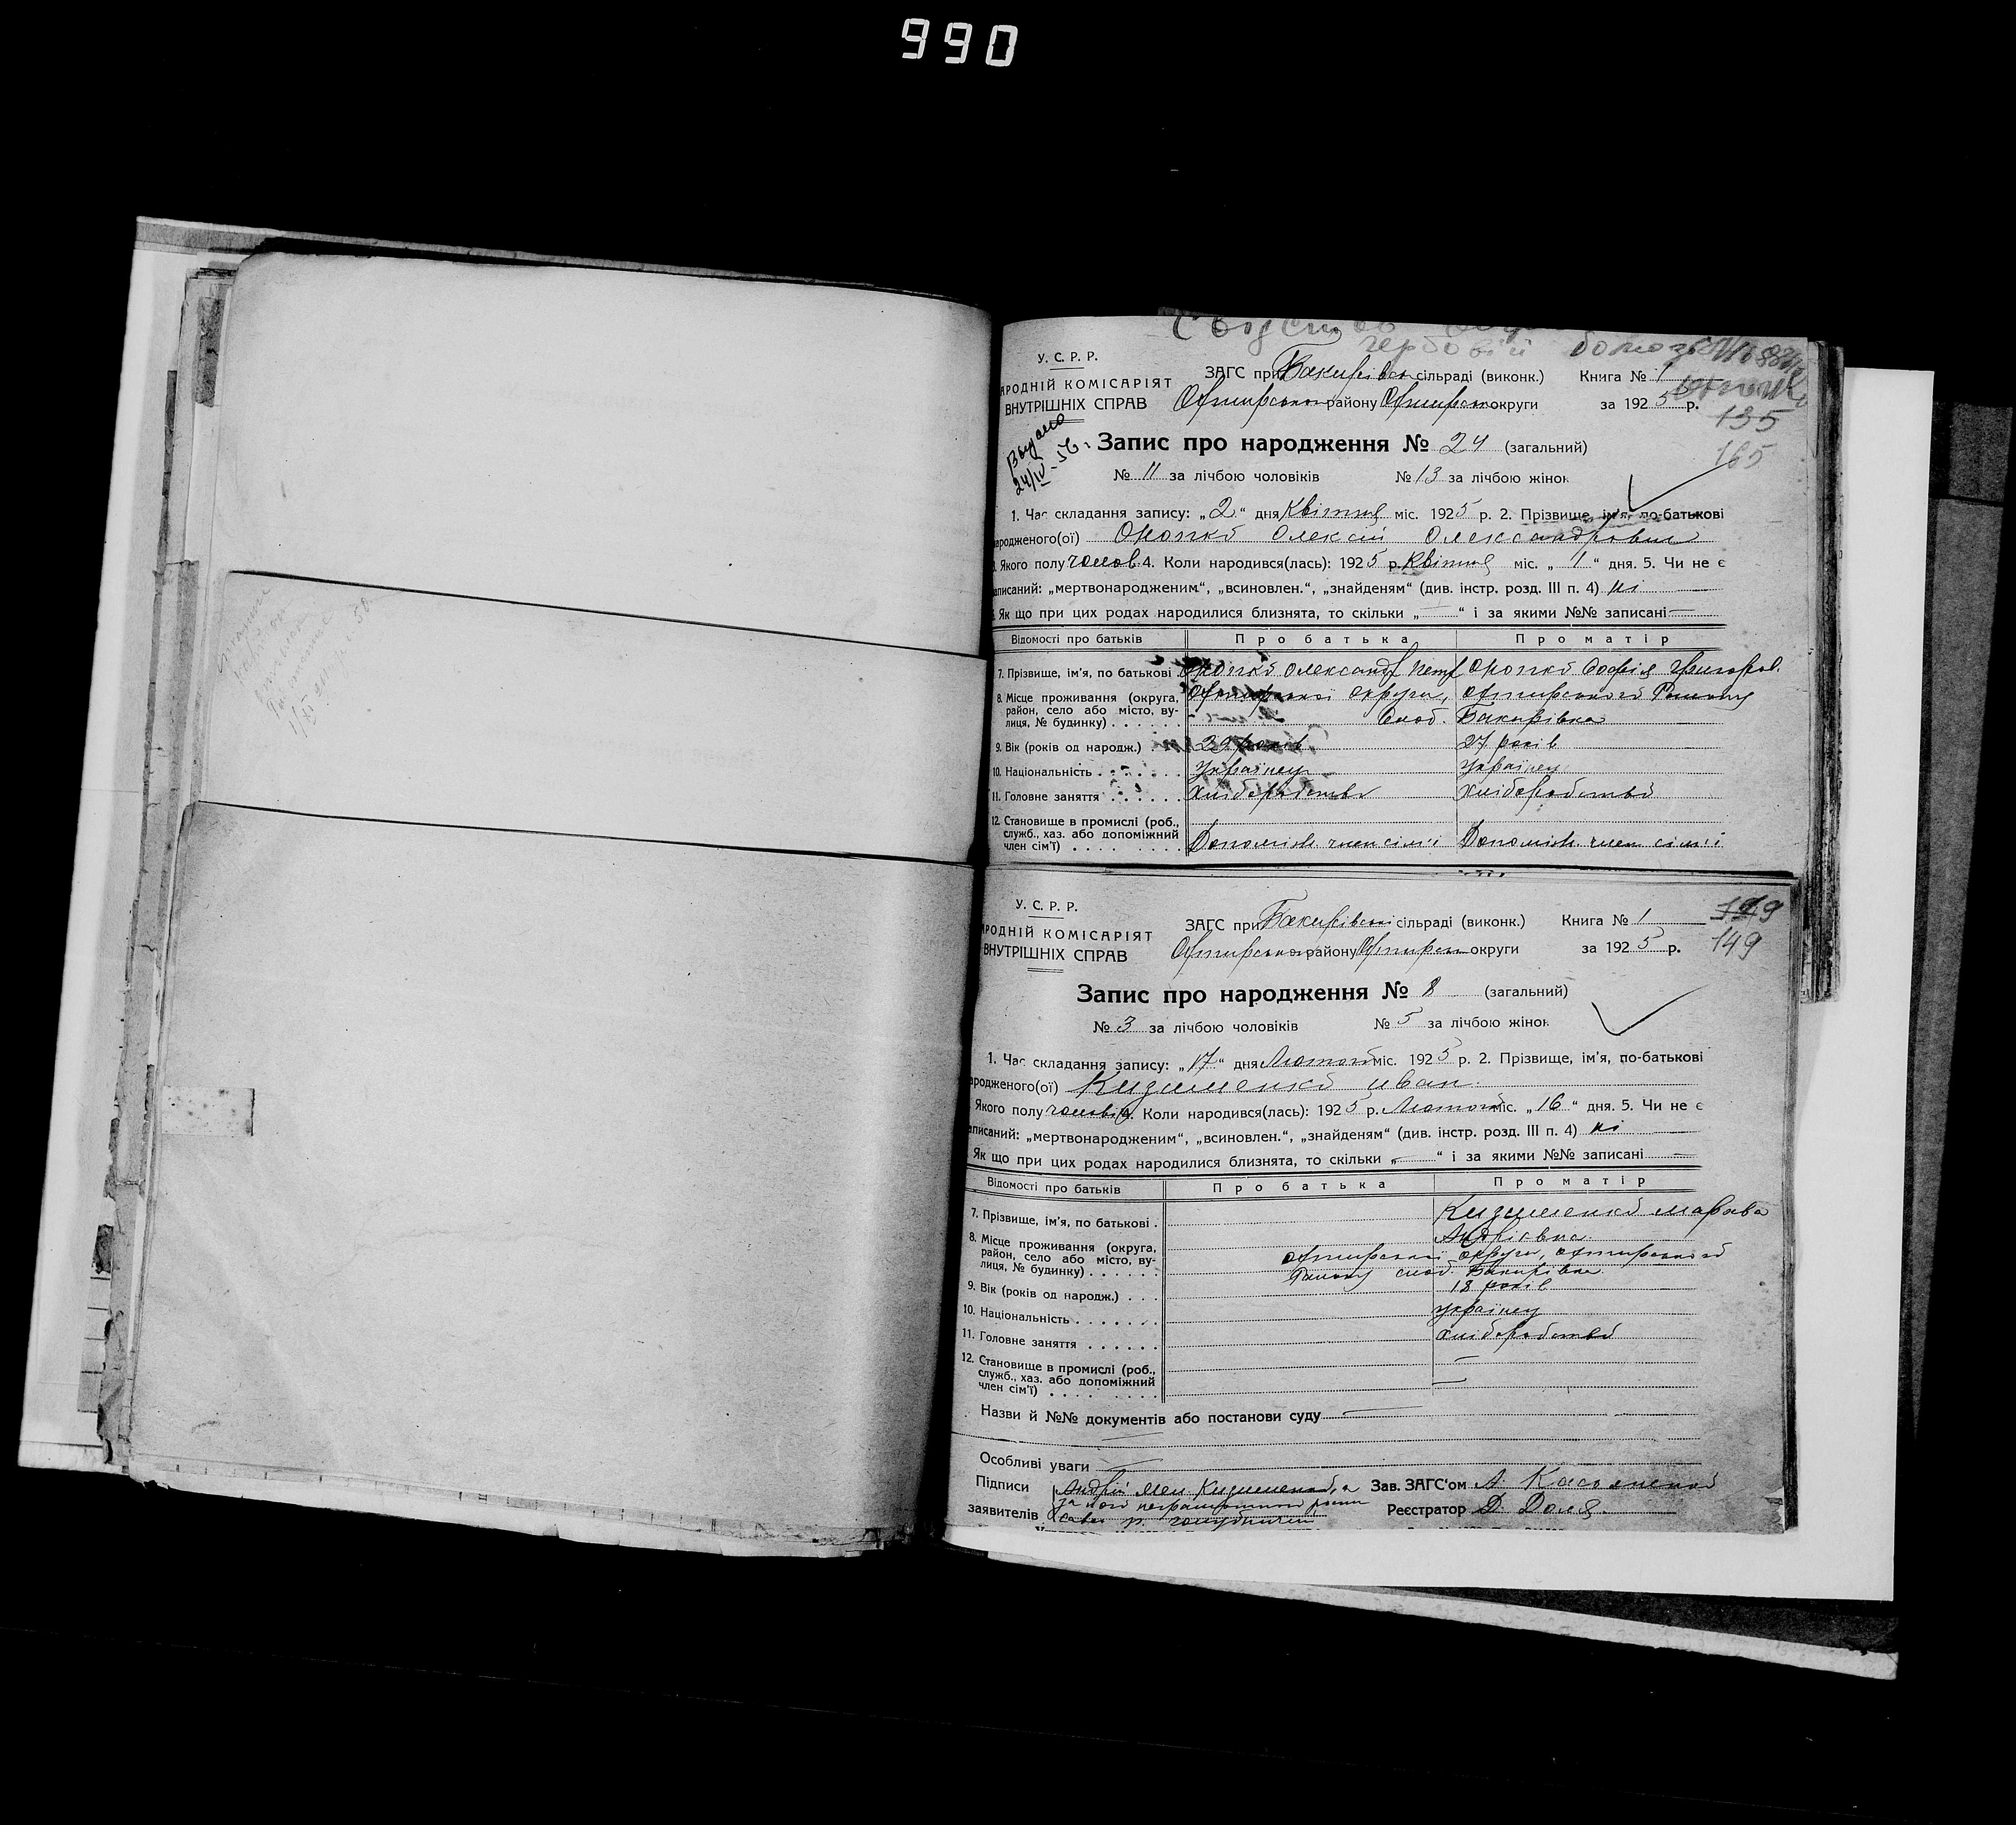 990
У. С. Р. Р.
АРОДНІЙ КОМІСАРІЯТ
ВНУТРІШНІХ СПРАВ
ЗАГС при Бакирівськ сільраді (виконк.) Книга № 1
району округи за 1925 р.
135
165
Видано
24/IV-56.
Запис про народження № 24 (загальний)
№ 11 за лічбою чоловіків № 13 за лічбою жінок
1. Час складання запису: „2“ дня Квітня міс. 1925 р. 2. Прізвище, ім'я, по-батькові
ародженого(ої) Олексій Олександрович
Якого полу чолов. 4. Коли народився(лась): 1925 р. Квітня міс. „1“ дня. 5. Чи не є
аписаний: „мертвонародженим“, „всиновлен.“, „знайденям“ (див. інстр. розд. III п. 4) ні
Як що при цих родах народилися близнята, то скільки „ “ і за якими №№ записані
Відомості про батьків Про батька Про матір
7. Прізвище, ім'я, по батькові Олександр Петр Софія Григоров.
8. Місце проживання (округа, округи, Охтирського Району
район, село або місто, ву-
лиця, № будинку) . . . . . Слоб. Бакирівка
9. Вік (років од народж.) 29 років 27 років
10. Національність . . . . . . . Українец Українец
11. Головне заняття . . . . . . Хліборобство Хліборобство
12. Становище в промислі (роб.,
служб., хаз. або допоміжний
член сім'ї) . . . . . . . . . Допоміж. член сім'ї Допоміж. член сім'ї
У. С. Р. Р.
РОДНІЙ КОМІСАРІЯТ
ВНУТРІШНІХ СПРАВ
ЗАГС при Бакирівські сільраді (виконк.) Книга № 1
району округи за 1925 р.
149
Запис про народження № 8 (загальний)
№ 3 за лічбою чоловіків № 5 за лічбою жінок
1. Час складання запису: „17“ дня Лютого міс. 1925 р. 2. Прізвище, ім'я, по-батькові
ародженого(ої) Кизименко Иван.
Якого полу чоловіч 4. Коли народився(лась): 1925 р. Лютого міс. „16“ дня. 5. Чи не є
аписаний: „мертвонародженим“, „всиновлен.“, „знайденям“ (див. інстр. розд. III п. 4) ні
Як що при цих родах народилися близнята, то скільки „ “ і за якими №№ записані
Відомості про батьків Про батька Про матір
7. Прізвище, ім'я, по батькові . Кизименко
Андріевна.
8. Місце проживання (округа, Охтирської округи, Охтирського
район, село або місто, ву-
лиця, № будинку) . . . . . . Району слоб. Бакирівка.
9. Вік (років од народж.) . . . 18 років
10. Національність . . . . . . . Українец
11. Головне заняття . . . . . . Хліборобство
12. Становище в промислі (роб.,
служб., хаз. або допоміжний
член сім'ї) . . . . . . . . .
Назви й №№ документів або постанови суду
Особливі уваги
Підписи Андрій Кизименко, а Зав. ЗАГС'ом А. Касьяненко
заявителів Реєстратор Д. Доля.